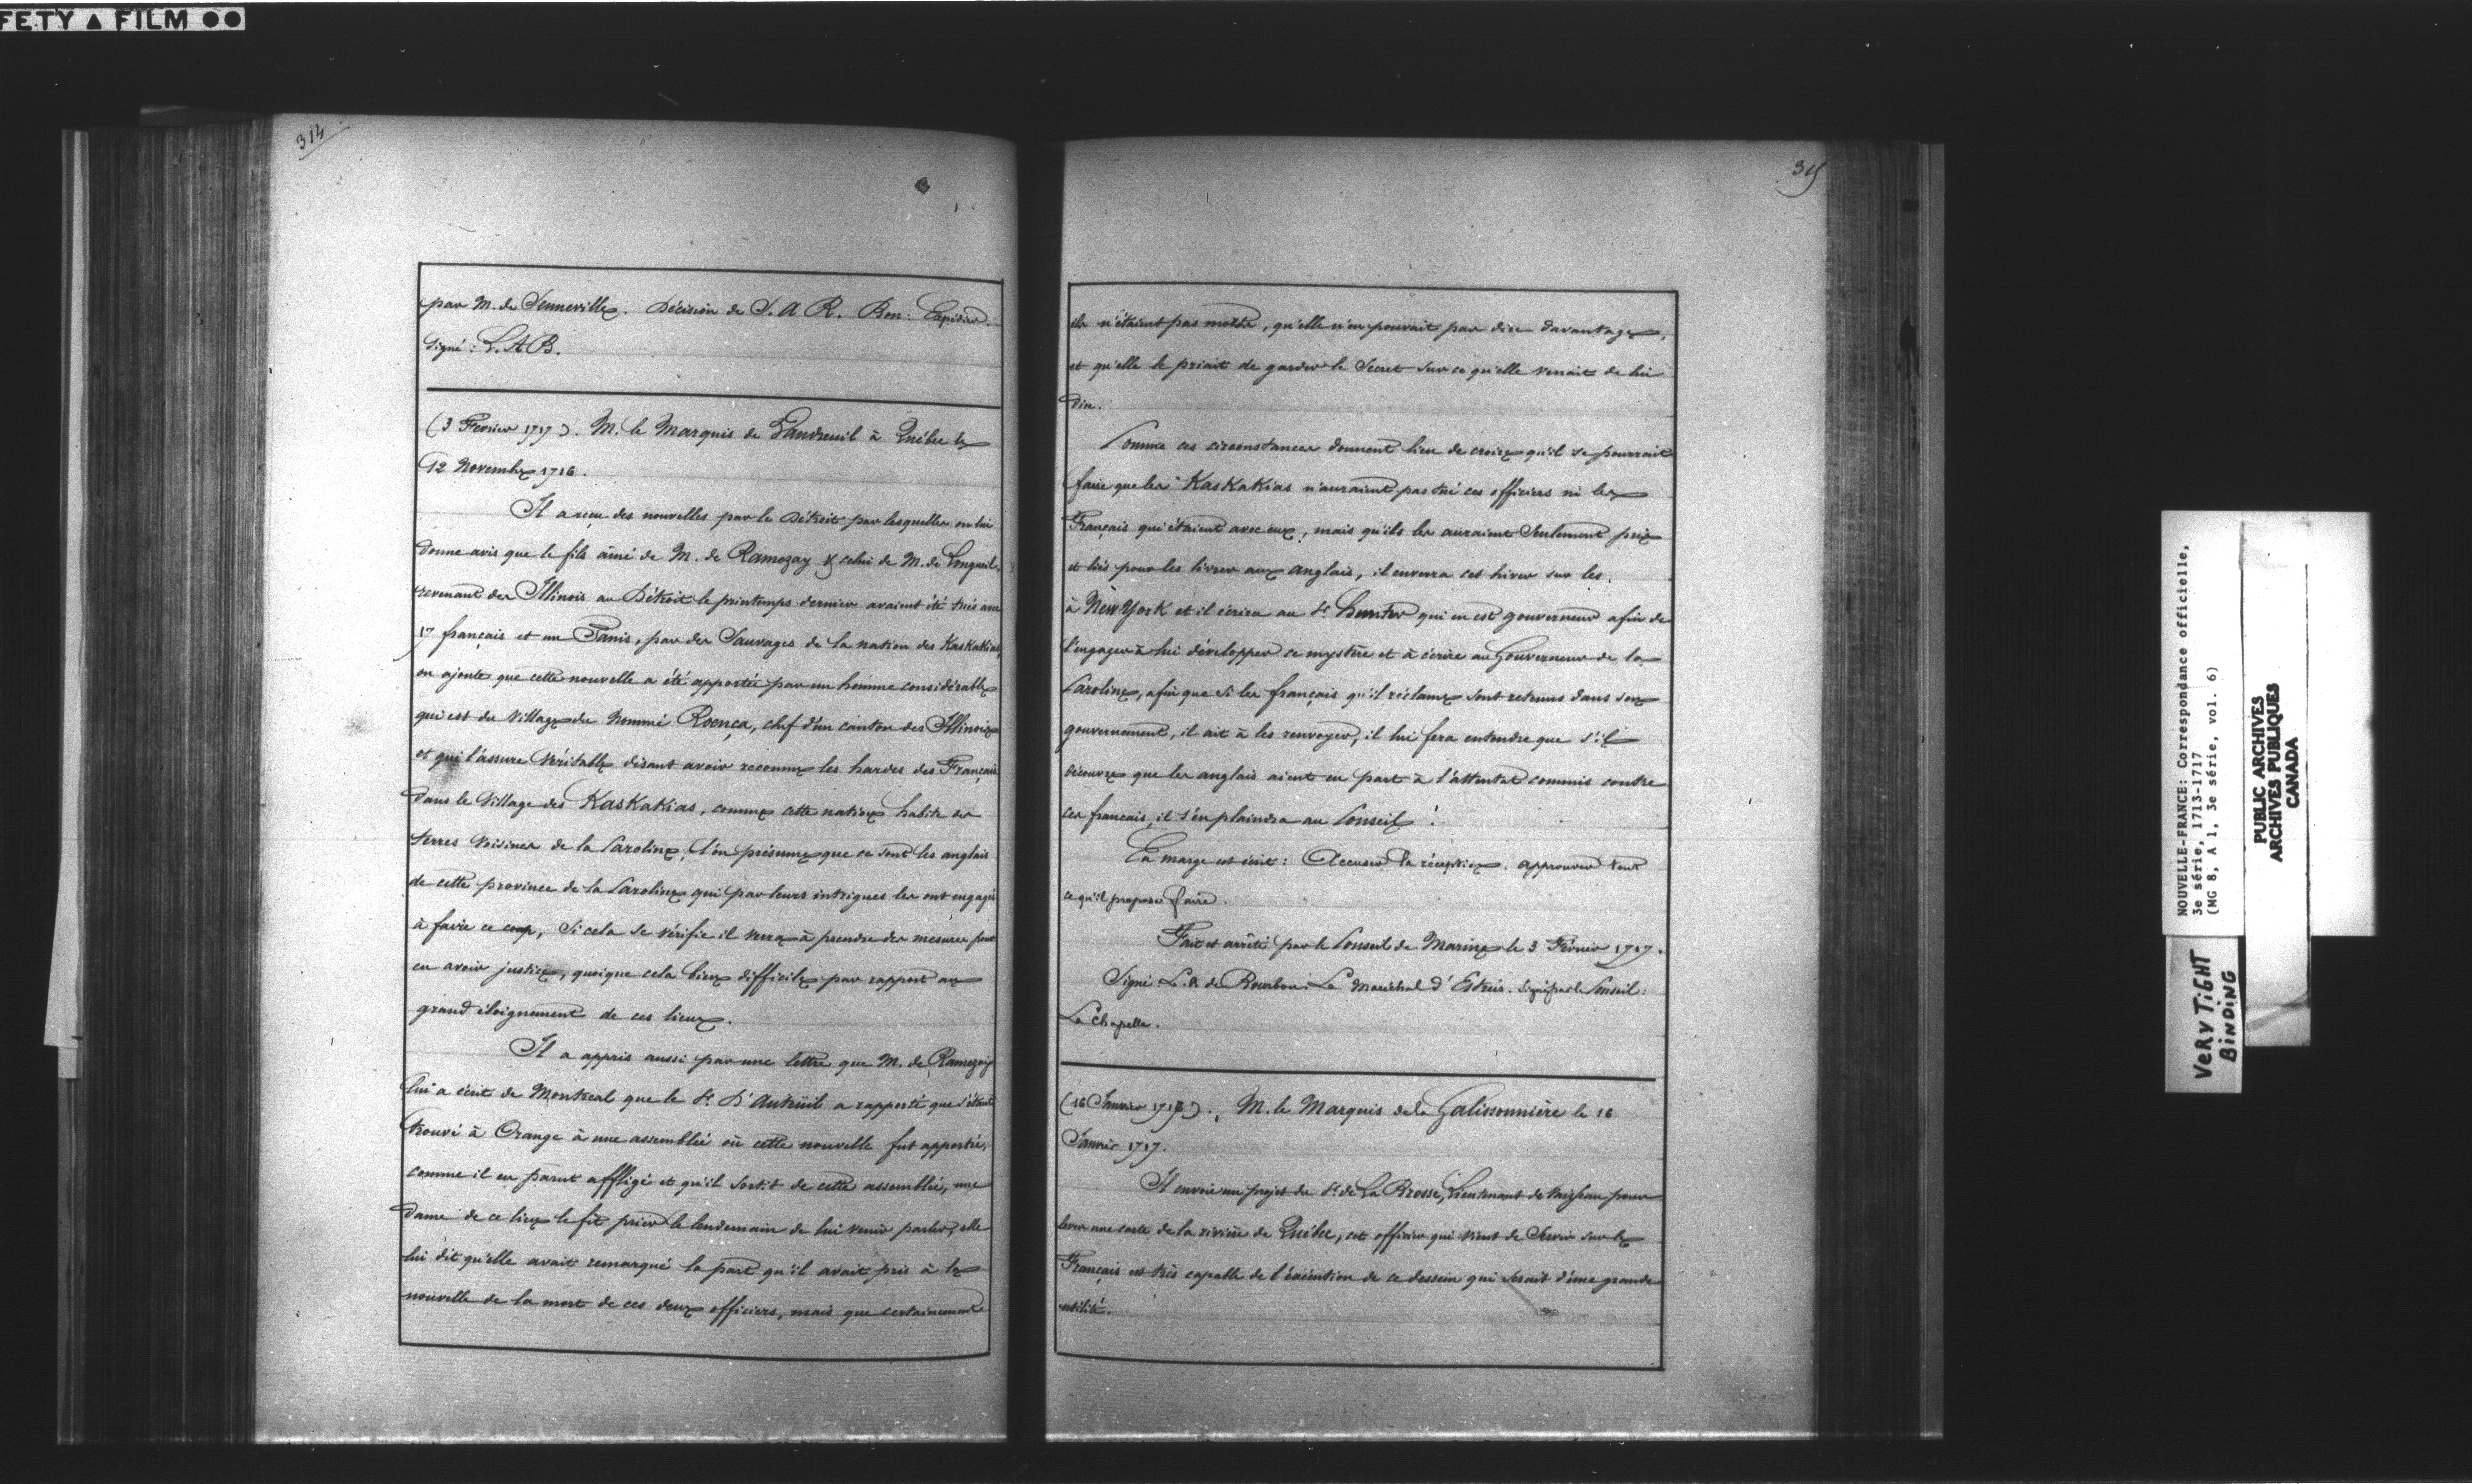 FETY ▲ FILM ●●
314
par M. de Senneville. Décision de S. A R. Bon: Expédier.
Signé: L. A B.
(3 Fevrier 1717). M. le Marquis de Vaudreuil à Québec le
12 Novembre 1716.
Il a reçu des nouvelles par le Détroit par lesquelles on lui
donne avis que le fils aîné de M. de Ramezay & celui de M. de Longueil,
revenant des Illinois au Détroit le printemps dernier avaient été tués avec
17 français et un Panis, par des Sauvages de la nation des Kaskakias,
on ajoute que cette nouvelle a été apportée par un homme considérable
qui est du Village du nommé Roença, chef d'un canton des Illinois
et qui l'assure Véritable disant avoir reconnu les hardes des Français
dans le Village des Kaskakias, comme cette nation habite ses
terres voisines de la Caroline, l'on présume que ce sont les anglais
de cette province de la Caroline qui par leurs intrigues les ont engagés
à faire ce coup, Si cela se vérifie il verra à prendre des mesures pour
en avoir justice, quoique cela bien difficile par rapport au
grand éloignement de ces lieux.
Il a appris aussi par une lettre que M. de Ramezay
lui a écrit de Montreal que le Sr. D'Auteüil a rapporté que s'étant
trouvé à Orange à une assemblée où cette nouvelle fut apportée,
comme il en parut affligé et qu'il sortit de cette assemblée, une
dame de ce lieu le fit prier le lendemain de lui venir parler, elle
lui dit qu'elle avait remarqué la part qu'il avait pris à la
nouvelle de la mort de ces deux officiers, mais que certainement
315
ils n'étaient pas morts, qu'elle n'en pouvait pas dire davantage,
et qu'elle le priait de garder le Secret sur ce qu'elle venait de lui
dire.
Comme ces circonstances donnent lieu de croire qu'il se pourrait
faire que les Kaskakias n'auraient pas tué ces officiers ni les
Français qui étaient avec eux, mais qu'ils les auraient Seulement pris
et liés pour les livrer aux anglais, il enverra cet hiver sur les
à New York et il écrira au Sr. Hunter qui en est gouverneur afin de
l'engager à lui développer ce mystère et à écrire au Gouverneur de la
Caroline, afin que si les français qu'il réclame sont retenus dans son
gouvernement, il ait à les renvoyer, il lui fera entendre que s'il
découvre que les anglais aient eu part à l'attentat commis contre
ces français, il s'en plaindra au Conseil.
En marge est écrit: Accuser la réception. approuver tout
ce qu'il propose faire.
Fait et arrêté par le Conseil de Marine le 3 Février 1717.
Signé L. A de Bourbon. Le Maréchal d'Estrées. Signé par le Conseil:
La Chapelle.
(16 Janvier 1717). M. le Marquis de la Galissonnière le 16
Janvier 1717.
Il envoie un projet du Sr. de La Brosse, Lieutenant de Vaisseau pour
lever une carte de la rivière de Québec, cet officier qui vient de Servir sur le
Français est très capable de l'éxécution de ce dessein qui serait d'une grande
utilité.
NOUVELLE-FRANCE: Correspondance officielle,
3e série, 1713-1717
(MG 8, A 1, 3e série, vol. 6)
PUBLIC ARCHIVES
ARCHIVES PUBLIQUES
CANADA
VERY TIGHT
BINDING